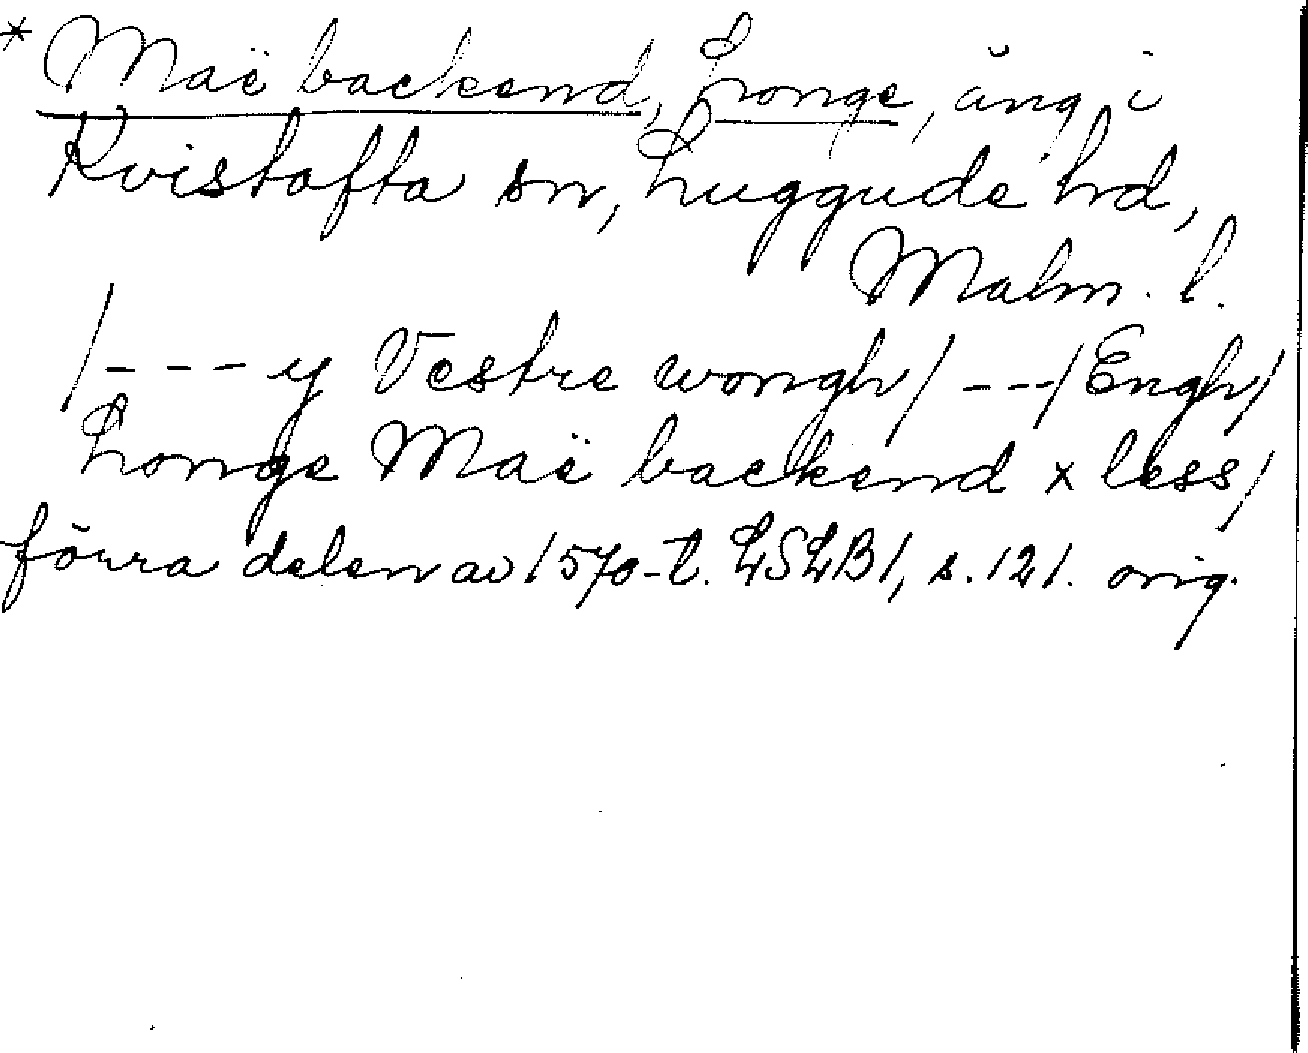 * Maë backend, Longe, äng i
Kvistofta sn, Luggude hd,
Malm. l.
/---y Vestre wongh/ ---/Engh/
Longe Maë backend x less/
förra delen av 1570-t. LSLB1, s. 121. orig.